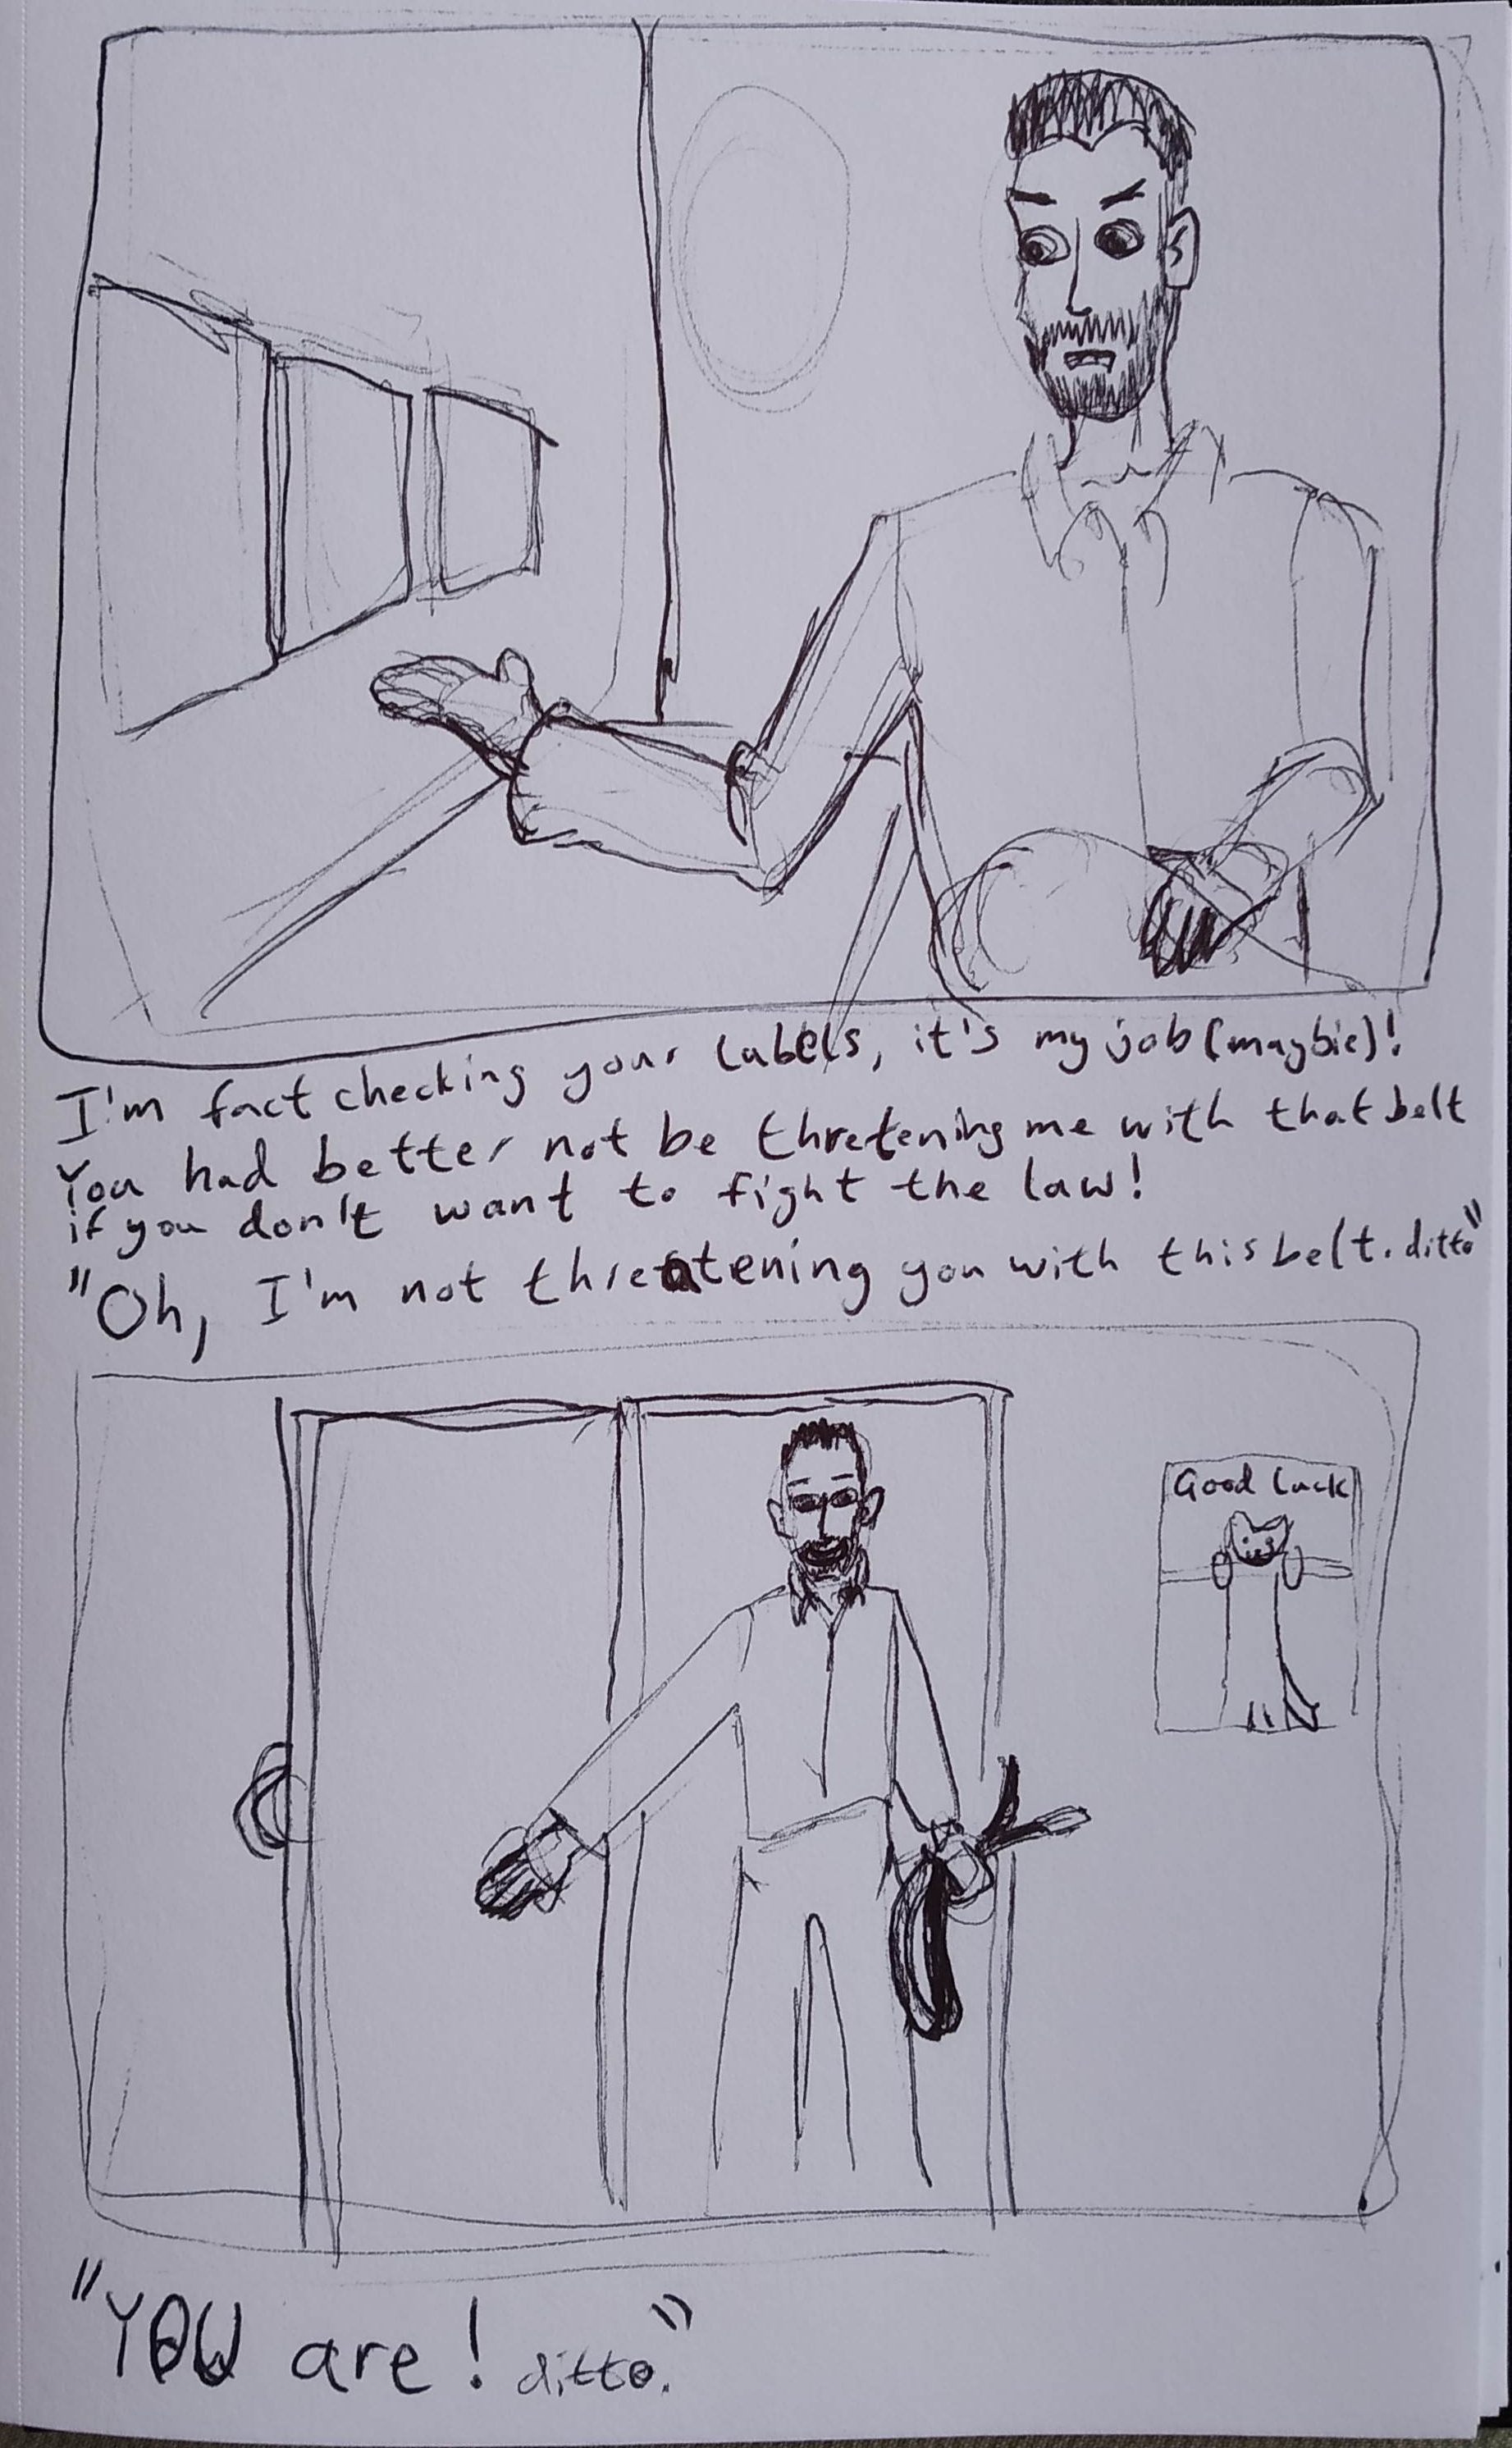 I'm fact checking your labels, it's my job (maybie)!
You had better not be thretening me with that belt
if you don't want to fight the law!
"Oh, I'm not threatening you with this belt. ditto"
Good luck
"YOU are! ditto."